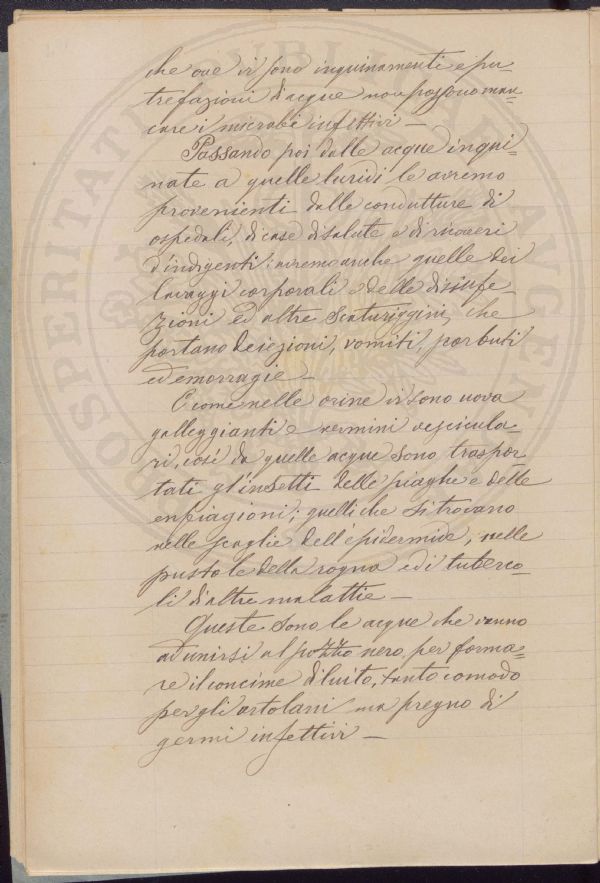 che ove vi sono inquinamenti e pu-
trefazioni d'acque non possono man-
care i microbi infettivi —
Passando poi dalle acque inqui-
nate a quelle luridi le avremo
provenienti dalle condutture di
ospedali, di case di salute e di ricoveri
d'indigenti: avremo anche quelle dei
lavaggi corporali e delle disinfe-
zioni ed altre scaturiggini, che
portano deiezioni, vomiti,
ed emorragie —
E come nelle orine vi sono uova
galleggianti e vermini vescicula-
ri, così da quelle acque sono traspor-
tati gl'insetti delle piaghe e delle
enfiagioni; quelli che si trovano
nelle scaglie dell'epidermide, nelle
pustole della rogna ed i tuberco-
li d'altre malattie —
Queste sono le acque che vanno
ad unirsi al pozzo nero, per forma-
re il concime diluito, tanto comodo
per gli ortolani ma pregno di
germi infettivi —
PROSPERITATI PUBLICAE AVGENDAE